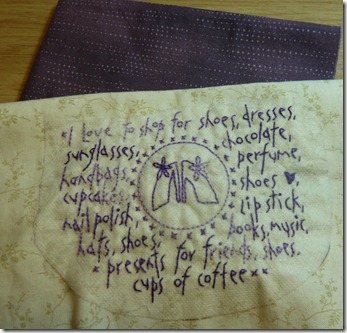 I love to shop for shoes, dresses,
sunglasses, chocolate,
handbags, perfume,
cupcakes, shoes
nail polish, lipstick,
hats, shoes, books, music,
presents for friends, shoes.
cups of coffee